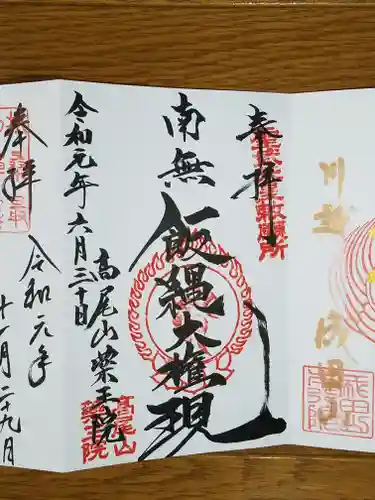 奉拝
南無
飯縄大権現
令和元年六月三十日
高尾山薬王院
高尾山
薬王院
奉拝
令和元年
十一月二十九月
川越
成田山